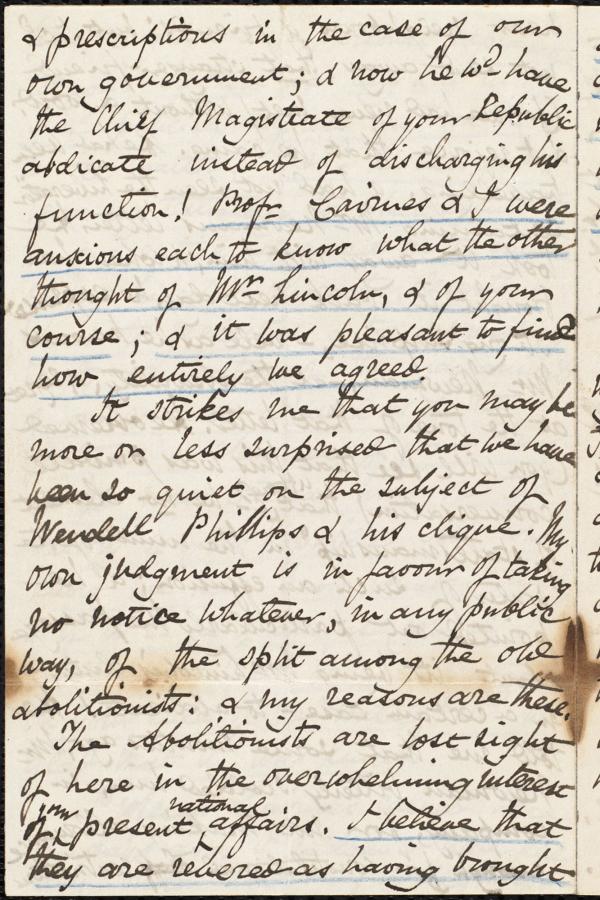 & prescriptions in the case of our
own government; & now he wd have
the Chief Magistrate of your Republic
abdicate instead of discharging his
function! Profr Cairnes & I were
anxious each to know what the other
thought of Mr Lincoln, & of your
course; & it was pleasant to find
how entirely we agreed.
It strikes me that you may be
more or less surprised that we have
been so quiet on the subject of
Wendell Phillips & his clique. My
own judgment is in favour of taking
no notice whatever, in any public
way, of the split among the old
abolitionists: & my reasons are these.
The Abolitionists are lost sight
of here in the overwhelming interest
of your present national affairs. I believe that
they are revered as having brought